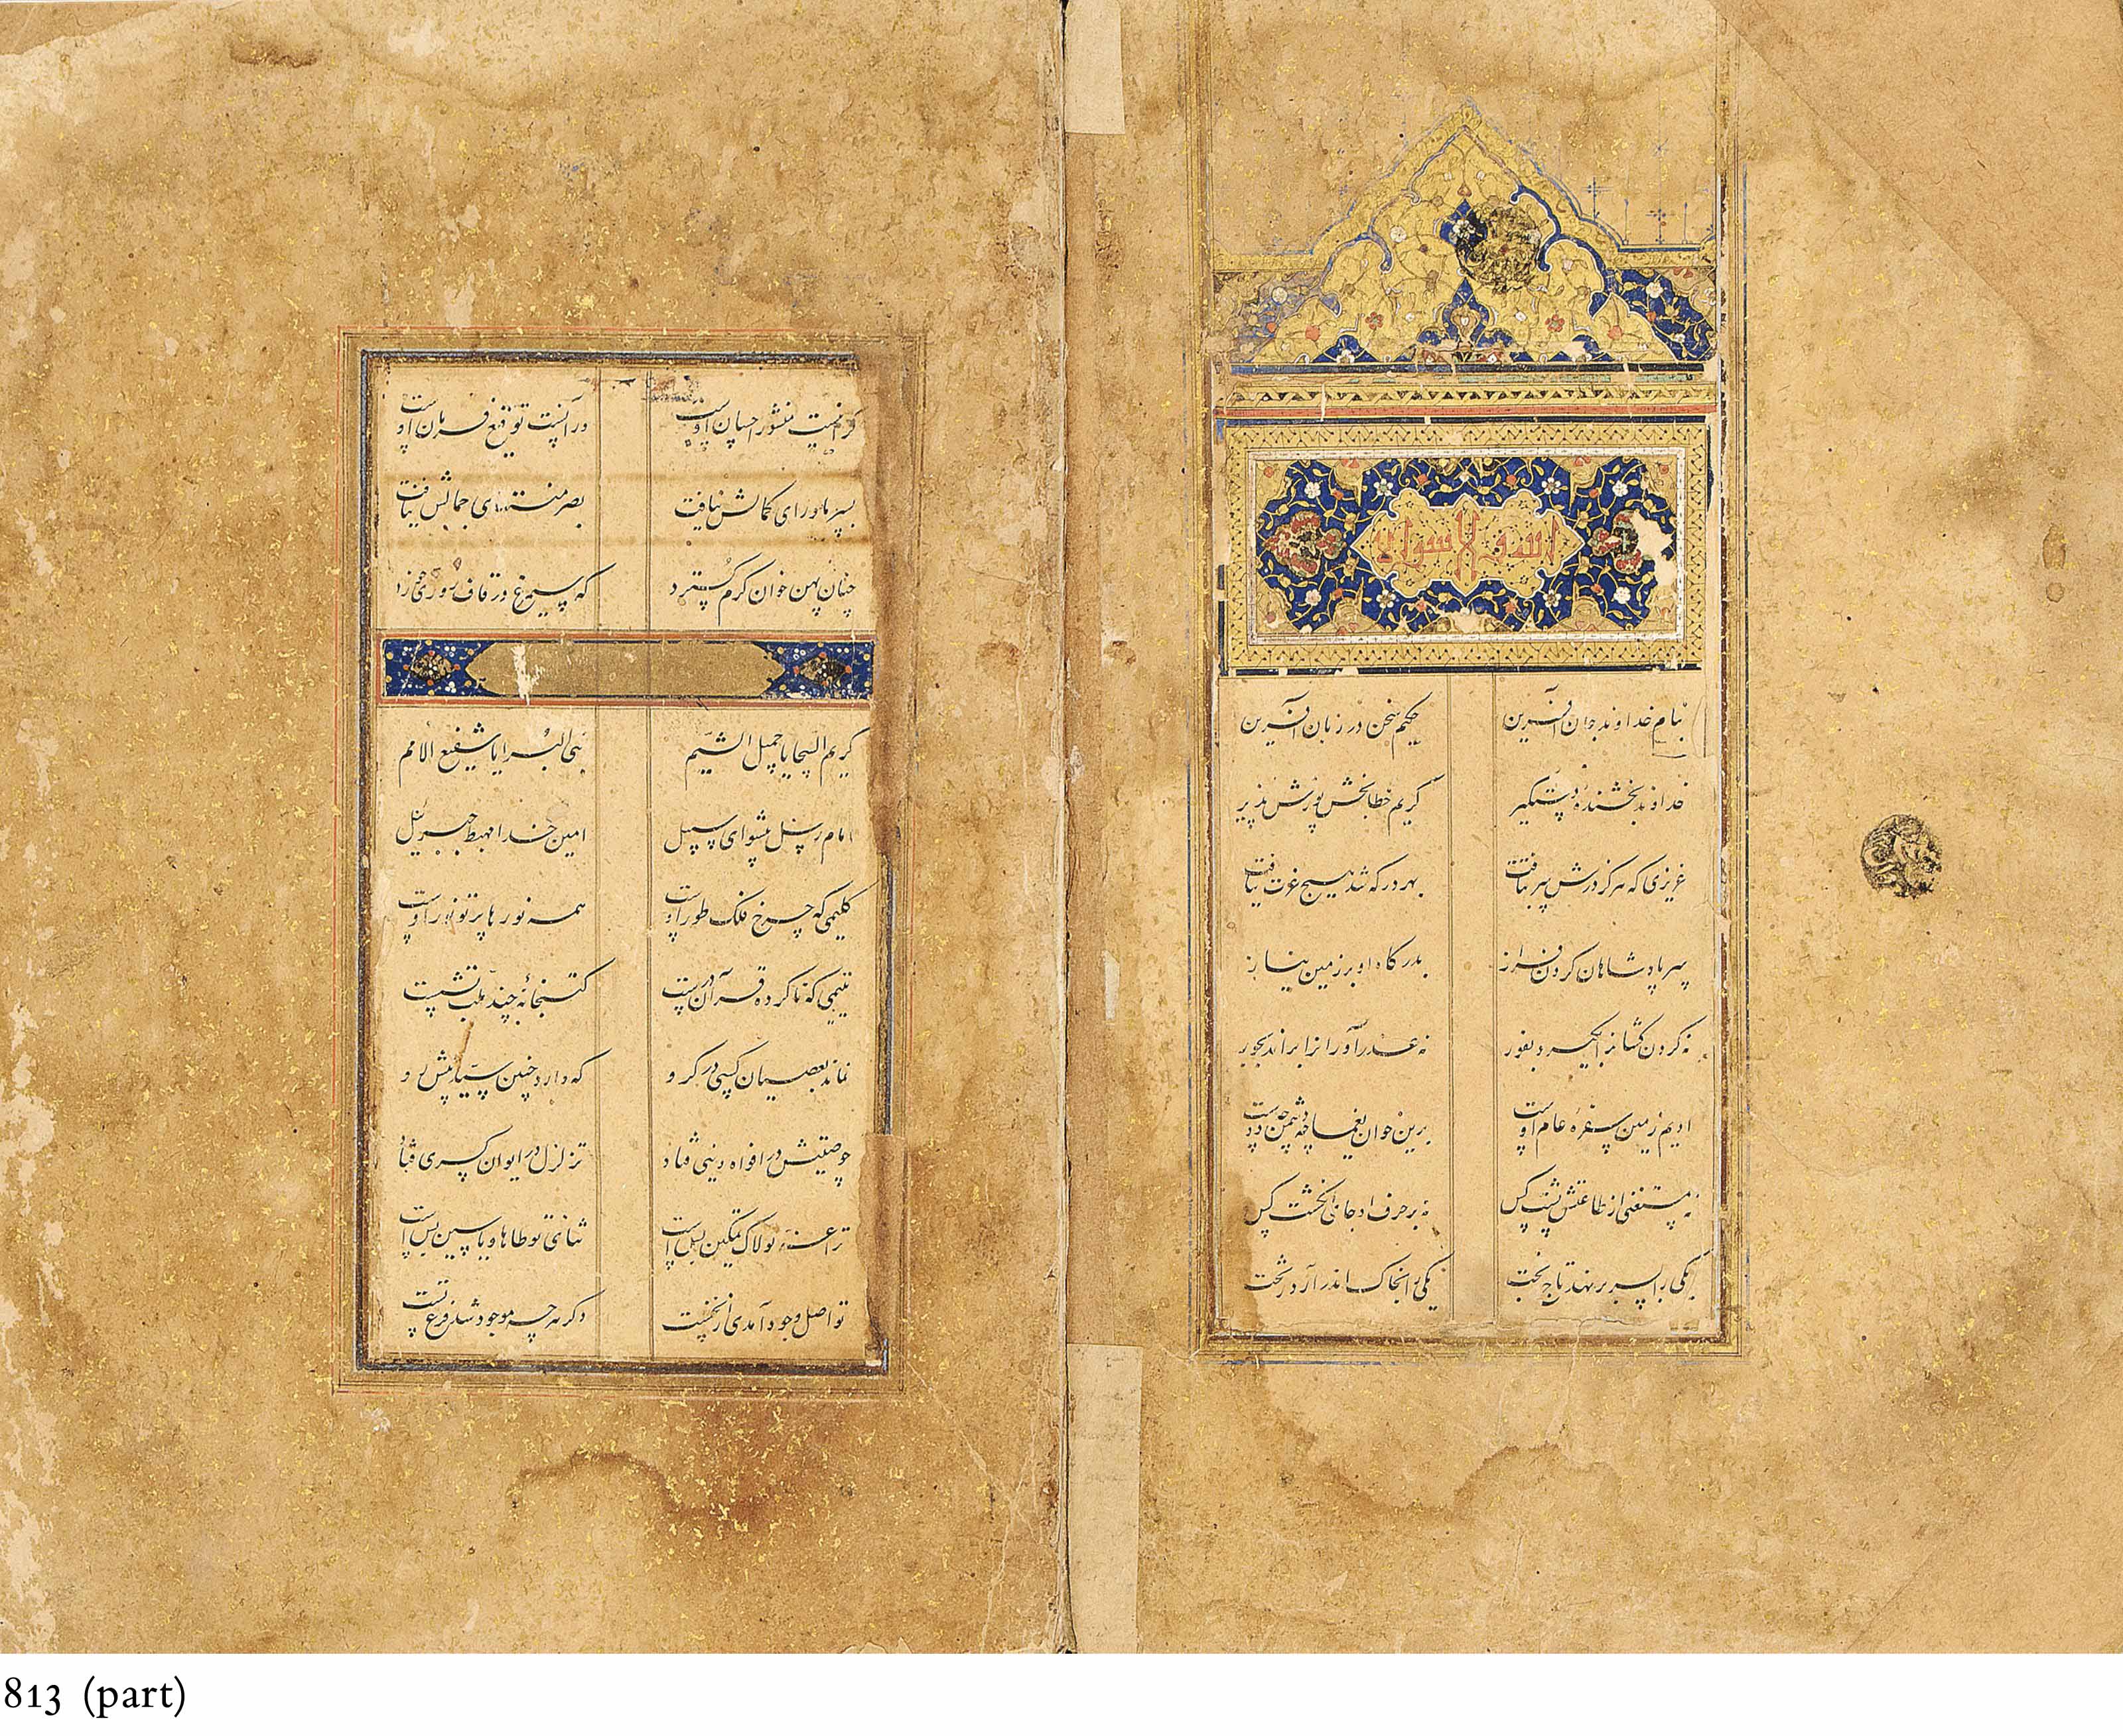 الله و لا سواه
بنام خداوند جان آفرین حکیم سخن در زبان آفرین
خداوند بخشندهٔ دستگیر کریم خطابخش پوزش پذیر
عزیزی که هرکز درش سر بتافت بهر در که شد هیچ عزت نیافت
سر پادشاهان کردن فراز بدرکاه او بر زمین نیاز
نه کردن کشانرا بکیرد بفور نه عذرآورانرا براند بجور
ادیم زمین سفرهٔ عام اوست برین خوان یغما چه دشمن چه دوست
نه مستغنی از طاعتش پشت کس نه بر حرف او جای انکشت کس
یکی را بسر بر نهد تاج بخت یکی را بخاک اندر آرد ز تخت
کر اینست منشور احسان اوست ور آنست توقیع فرمان اوست
بشر ماورای کمالش نیافت بصر منتهای جمالش نیافت
چنان پهن خوان کرم کسترد که سیمرغ در قاف روزی خورد
کریم السجایا جمیل الشیم نبی البرایا شفیع الامم
امام رسل پیشوای سبیل امین خدا مهبط جبرئیل
کلیمی که چرخ فلک طور اوست همه نورها پرتو نور اوست
یتیمی که ناکرده قرآن درست کتبخانهٔ چند ملت بشست
نماند بعصیان کسی در کرو که دارد چنین سید پیش رو
چو صیتش در افواه دنیی فتاد تزلزل در ایوان کسری فتاد
ترا عز لولاک تمکین بس است ثنای تو طاها و یاسین بس است
تو اصل وجود آمدی از نخست دکر هر چه موجود شد فرع تست
813 (part)